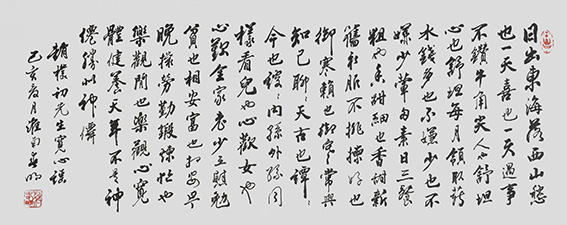 日出東海落西山愁
也一天喜也一天遇事
不鑽牛角尖人也舒坦
心也舒坦每月領取薪
水錢多也不嫌少也不
嫌少葷多素日三餐
粗也香甜細也香甜新
舊衣服不挑揀好也
御寒賴也御寒常與
知己聊々天古也譚々
今也譚々内孫外孫同
樣看兒也心歡女也
心歡全家老少互慰勉
貧也相安富也相安早
晚操勞勤鍛煉忙也
樂觀閒也樂觀心寬
體健養天年不是神
僊勝似神僊
趙樸初先生寬心謠
己亥春月淮南